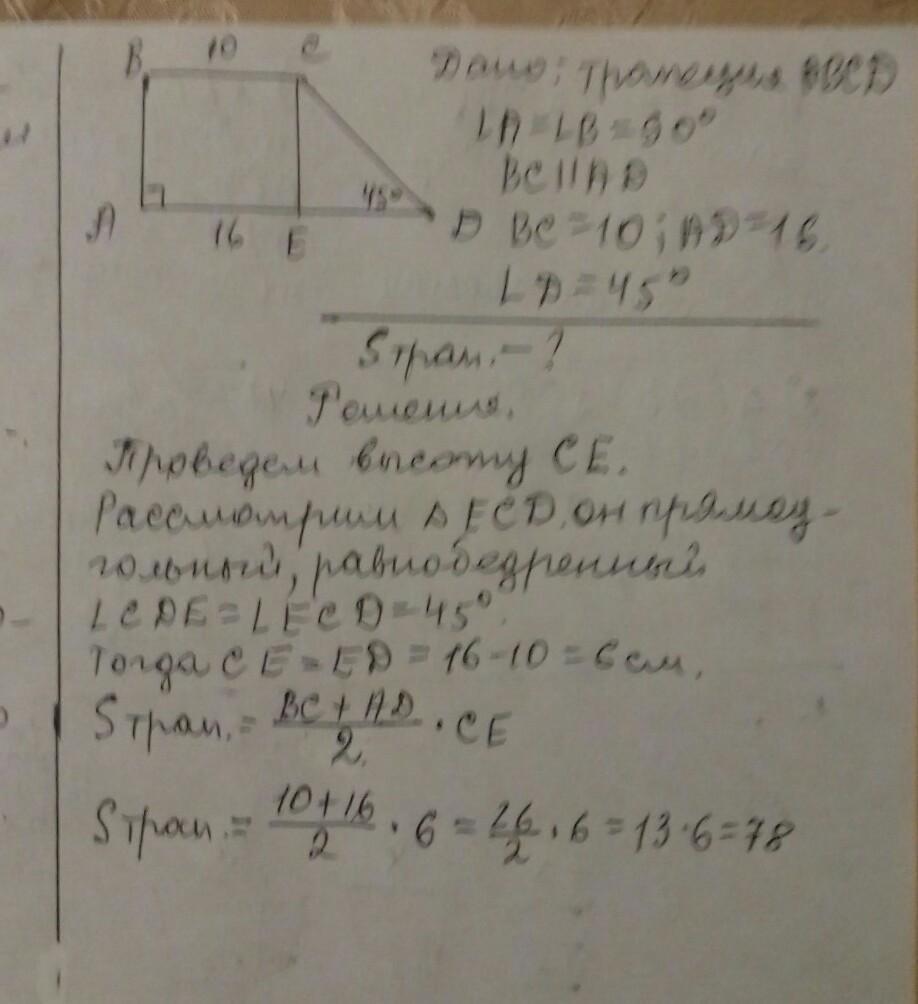 B 10 C
A 16 E D
45°
Дано: трапеция ABCD
∠A=∠B=90°
BC||AD
BC=10; AD=16.
∠D=45°
Sтрап.-?
Решения.
Проведем высоту CE.
Рассмотрим ΔECD, он прямоу-
гольный, равнобедренный
∠CDE=∠ECD=45°.
Тогда CE=ED=16-10=6см.
Sтрап.= (BC+AD)/2 · CE
Sтрап.= (10+16)/2 · 6 = 26/2 · 6 = 13·6=78